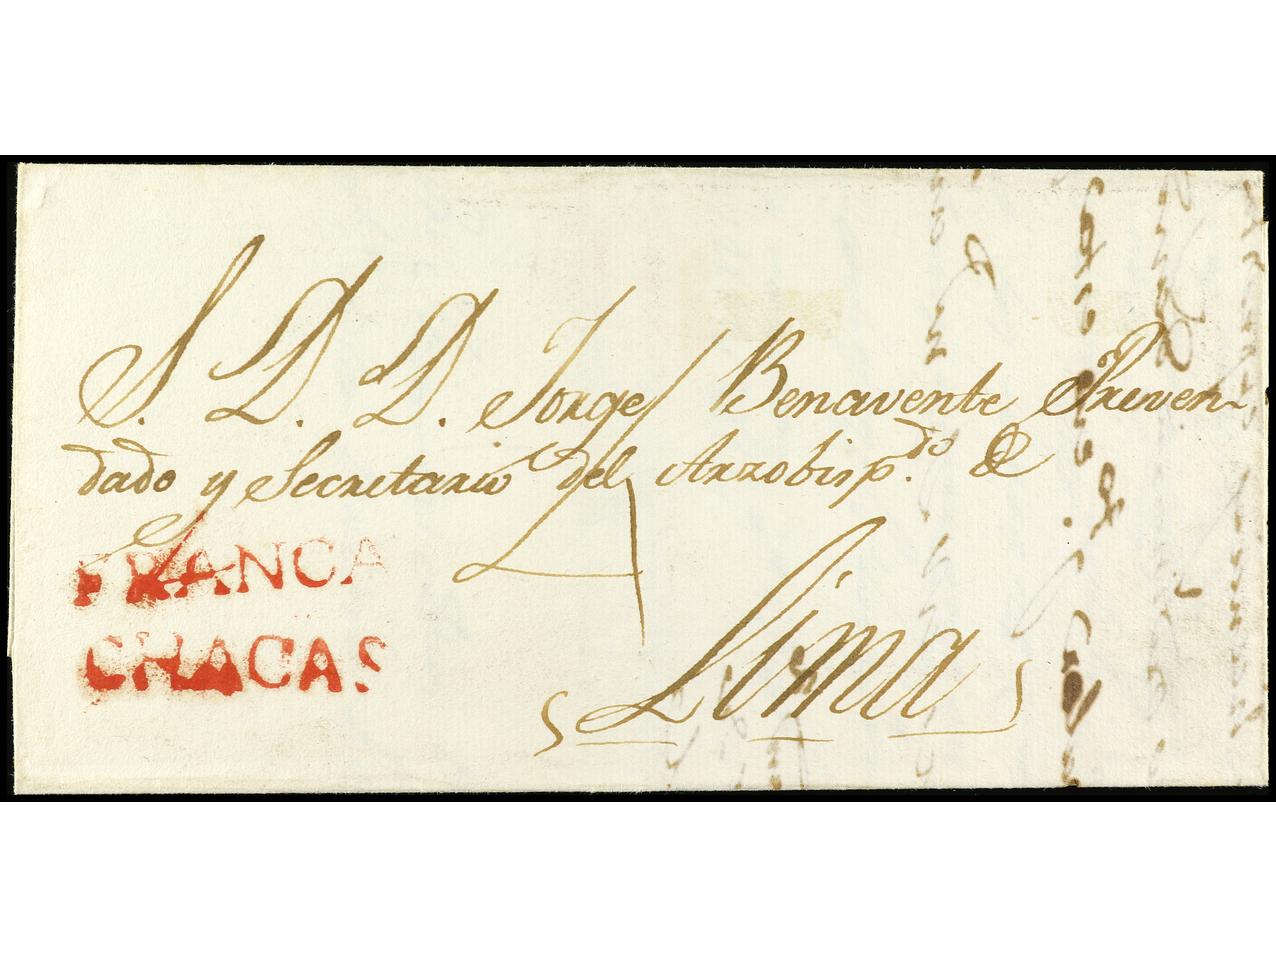 S. D. D. Jorge Benavente Preven-
dado y Secretario del Arzobisp.do de
Lima
FRANCA
CHACAS